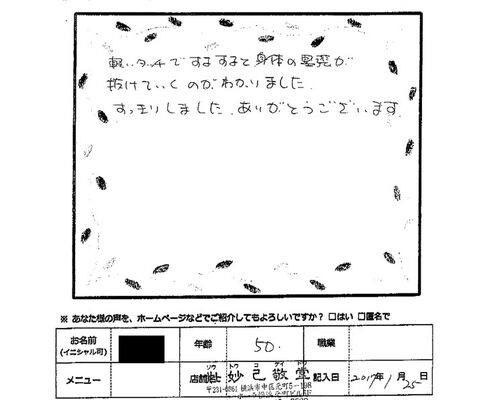 軽いタッチでするすると身体の悪霊が
抜けていくのがわかりました。
すっきりしました。ありがとうございます。
※ あなた様の声を、ホームページなどでご紹介してもよろしいですか？ □はい □匿名で
お名前
(イニシャル可)
年齢
50
職業
メニュー
店舗
妙己敬堂
〒231-0861 横浜市中区元町5-198
記入日
2017年1月25日